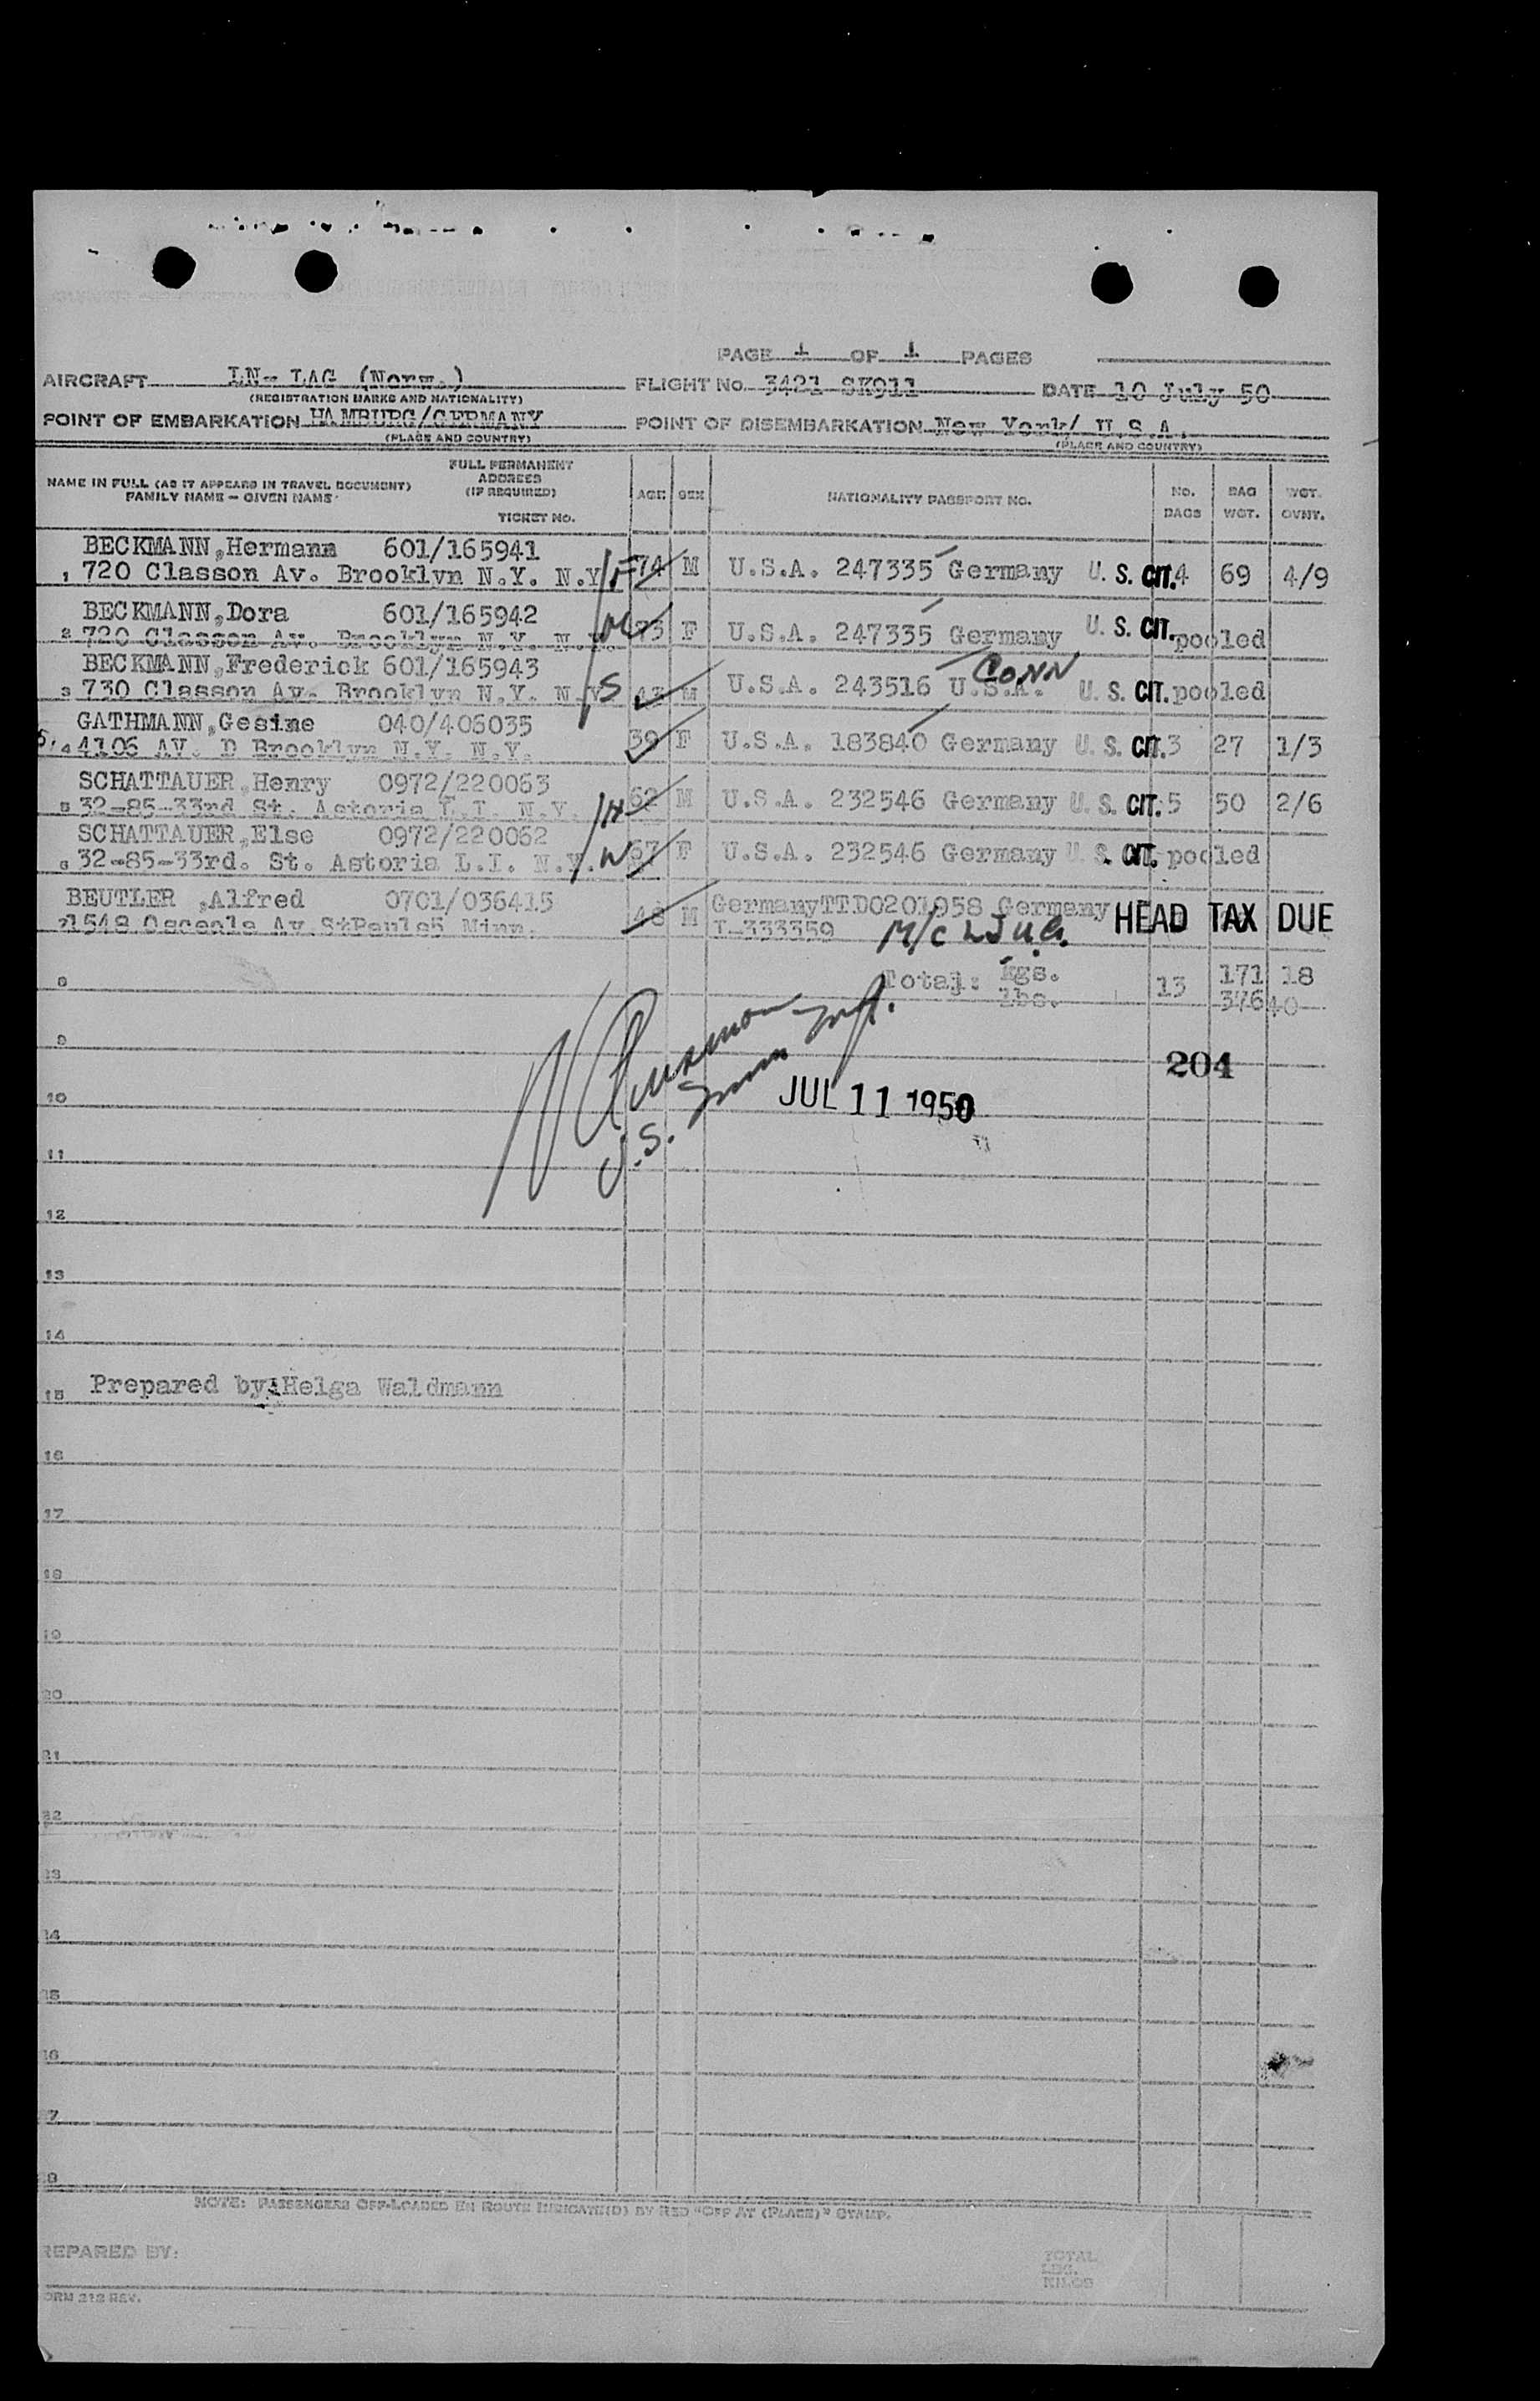 PAGE 1 OF 1 PAGES
AIRCRAFT LN- LAG (Norw.) FLIGHT No. 3421 SK911 DATE 10 July 50
(REGISTRATION MARKS AND NATIONALITY)
POINT OF EMBARKATION HAMBURG/GERMANY POINT OF DISEMBARKATION New York/ U.S.A.
(PLACE AND COUNTRY) (PLACE AND COUNTRY)
NAME IN FULL (AS IT APPEARS IN TRAVEL DOCUMENT) FULL PERMANENT ADDRESS (IF REQUIRED) AGE SEX NATIONALITY PASSPORT NO. No. BAGS BAG WGT. WGT. OVNT.
FAMILY NAME - GIVEN NAME TICKET No.
BECKMANN,Hermann 601/165941
1 720 Classon Av. Brooklyn N.Y. N.Y. /F 74 M U.S.A. 247335 Germany U. S. CIT. 4 69 4/9
BECKMANN,Dora 601/165942
2 720 Classon Av. Brooklyn N.Y. N.Y. M 73 F U.S.A. 247335 Germany U. S. CIT. pooled
BECKMANN,Frederick 601/165943 CONN
3 730 Classon Av. Brooklyn N.Y. N.Y. S M U.S.A. 243516 U.S.A. U. S. CIT. pooled
GATHMANN,Gesine 040/406035
4 4106 AV. D Brooklyn N.Y. N.Y. 39 F U.S.A. 183840 Germany U. S. CIT. 3 27 1/3
SCHATTAUER,Henry 0972/220063
5 32-85-33rd St. Astoria L.I. N.Y. /H 62 M U.S.A. 232546 Germany U. S. CIT. 5 50 2/6
SCHATTAUER,Else 0972/220062
6 32-85-33rd. St. Astoria L.I. N.Y. /W 57 F U.S.A. 232546 Germany U. S. CIT. pooled
BEUTLER ,Alfred 0701/036415 48 M GermanyTTD0201958 Germany HEAD TAX DUE
7 1548 Osceola Av.StPaul5 Minn. I-333359 M/C
8 Total: Kgs. 13 171 18
lbs. 376 40
9
204
10 JUL 11 1950
U.S. Imm Insp.
11
12
13
14
15 Prepared by:Helga Waldmann
16
17
18
19
20
21
22
23
24
25
26
27
28
NOTE: PASSENGERS OFF-LOADED EN ROUTE INDICATE(D) BY RED "OFF AT (PLACE)" STAMP.
REPARED BY: TOTAL
LBS.
KILOS
ORM 212 REV.